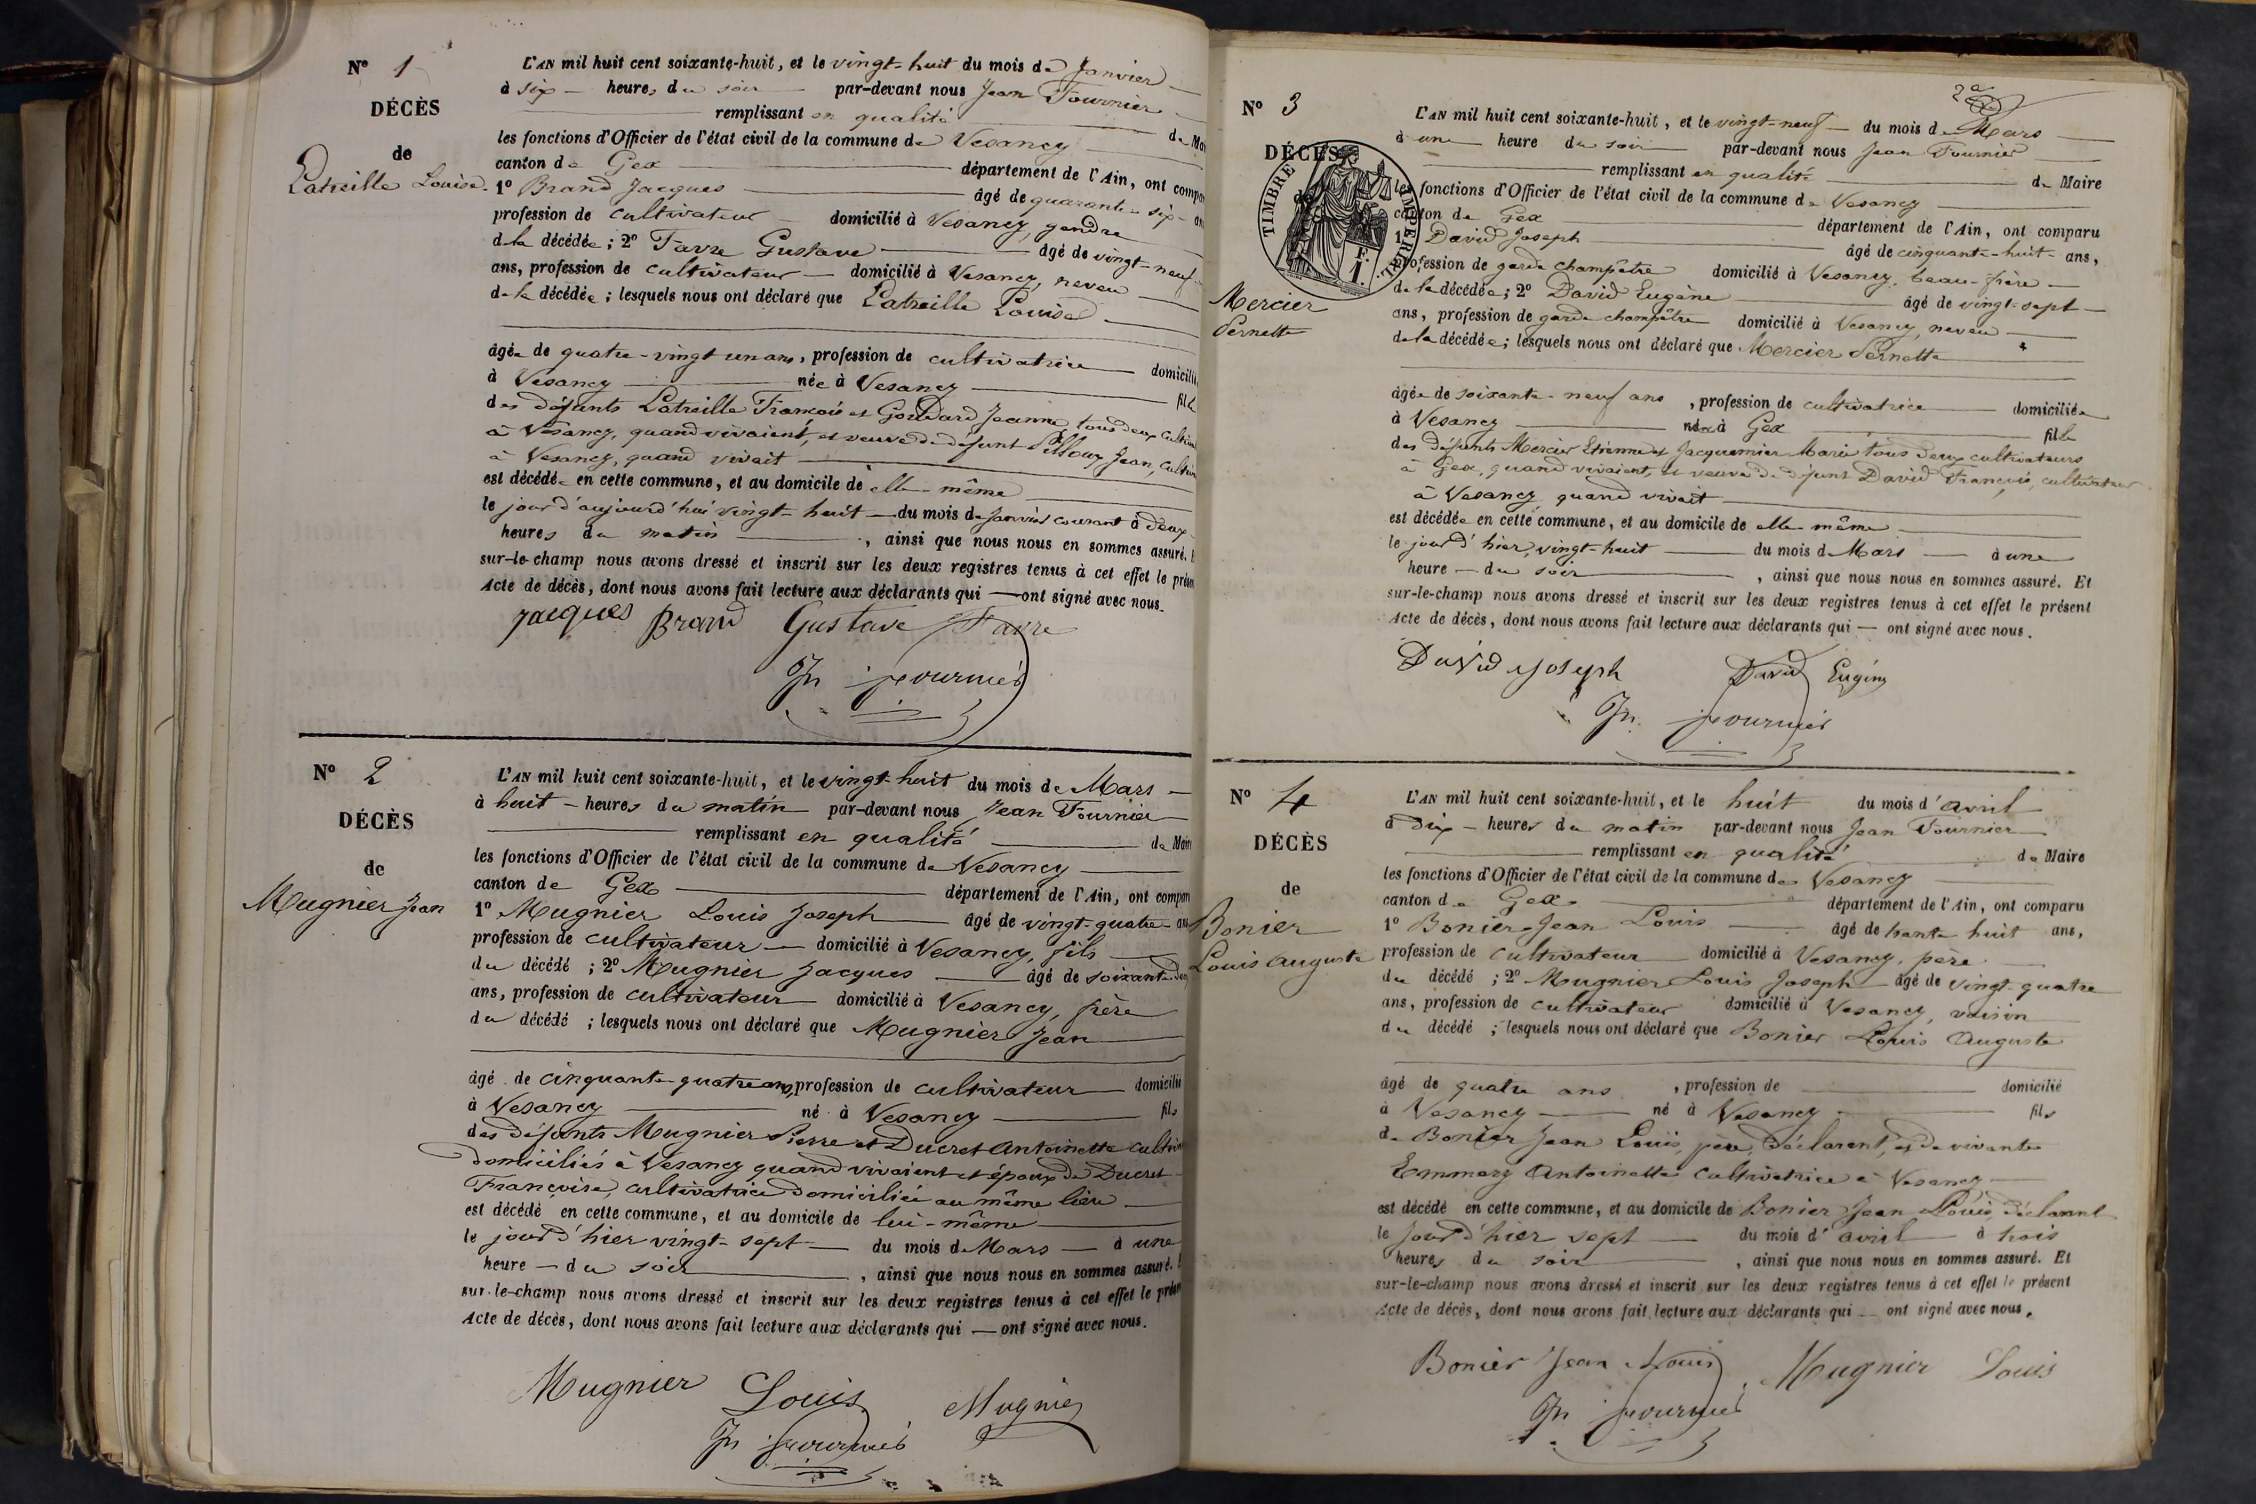 N° 1
DÉCÈS
de
Latreille Louise.
L'AN mil huit cent soixante-huit, et le vingt-huit du mois de Janvier
à six heures du soir par-devant nous Jean Fournier
remplissant en qualité de Mai
les fonctions d'Officier de l'état civil de la commune de Vesancy
canton de Gex département de l'Ain, ont compar
1° Brand Jacques âgé de quarante-six an
profession de cultivateur domicilié à Vesancy, gendre
de la décédée; 2° Favre Gustave âgé de vingt-neuf
ans, profession de cultivateur domicilié à Vesancy, neveu
de la décédée; lesquels nous ont déclaré que Latreille Louise
âgée de quatre-vingt un ans, profession de cultivatrice domicilié
à Vesancy née à Vesancy fille
des défunts Latreille François et Goudard Jeanne, tous deux cultiv
à Vesancy, quand vivaient, et veuve de défunt Pilloux Jean, cultiv
à Vesancy, quand vivait
est décédée en cette commune, et au domicile de elle-même
le jour d'aujourd'hui vingt-huit du mois de Janvier courant à deux
heures du matin, ainsi que nous nous en sommes assuré. E
sur-le-champ nous avons dressé et inscrit sur les deux registres tenus à cet effet le présen
Acte de décès, dont nous avons fait lecture aux déclarants qui ont signé avec nous.
Jacques Brand Gustave Favre
Jn Fournier
N° 2
DÉCÈS
de
Mugnier Jean
L'AN mil huit cent soixante-huit, et le vingt-huit du mois de Mars
à huit heures du matin par-devant nous Jean Fournier
remplissant en qualité de Maire
les fonctions d'Officier de l'état civil de la commune de Vesancy
canton de Gex département de l'Ain, ont compar
1° Mugnier Louis Joseph âgé de vingt-quatre ans
profession de cultivateur domicilié à Vesancy, fils
du décédé; 2° Mugnier Jacques âgé de soixante-deux
ans, profession de cultivateur domicilié à Vesancy, frère
du décédé; lesquels nous ont déclaré que Mugnier Jean
âgé de cinquante-quatre ans, profession de cultivateur domicilié
à Vesancy né à Vesancy fils
des défunts Mugnier Pierre et Ducret Antoinette cultiv
domiciliés à Vesancy quand vivaient et époux de Ducret
Françoise, cultivatrice domiciliée au même lieu
est décédé en cette commune, et au domicile de lui-même
le jour d'hier vingt-sept du mois de Mars à une
heure du soir, ainsi que nous nous en sommes assuré. E
sur-le-champ nous avons dressé et inscrit sur les deux registres tenus à cet effet le présen
Acte de décès, dont nous avons fait lecture aux déclarants qui ont signé avec nous.
Mugnier Louis Mugnier
Jn Fournier
N° 3
DÉCÈS
de
Mercier
Pernette
TIMBRE IMPÉRIAL
F. 1.
L'AN mil huit cent soixante-huit, et le vingt-neuf du mois de Mars
à une heure du soir par-devant nous Jean Fournier
remplissant en qualité de Maire
les fonctions d'Officier de l'état civil de la commune de Vesancy
canton de Gex département de l'Ain, ont comparu
1° David Joseph âgé de cinquante-huit ans,
profession de garde champêtre domicilié à Vesancy, beau-frère
de la décédée; 2° David Eugène âgé de vingt-sept
ans, profession de garde champêtre domicilié à Vesancy, neveu
de la décédée; lesquels nous ont déclaré que Mercier Pernette
âgée de soixante-neuf ans, profession de cultivatrice domiciliée
à Vesancy née à Gex fille
des défunts Mercier Etienne et Jacquemier Marie tous deux cultivateurs
à Gex, quand vivaient, et veuve de défunt David François, cultivateur
à Vesancy quand vivait
est décédée en cette commune, et au domicile de elle-même
le jour d'hier, vingt-huit du mois de Mars à une
heure du soir, ainsi que nous nous en sommes assuré. Et
sur-le-champ nous avons dressé et inscrit sur les deux registres tenus à cet effet le présent
Acte de décès, dont nous avons fait lecture aux déclarants qui ont signé avec nous.
David Joseph David Eugène
Jn Fournier
N° 4
DÉCÈS
de
Bonier
Louis Auguste
L'AN mil huit cent soixante-huit, et le huit du mois d'avril
à dix heures du matin par-devant nous Jean Fournier
remplissant en qualité de Maire
les fonctions d'Officier de l'état civil de la commune de Vesancy
canton de Gex département de l'Ain, ont comparu
1° Bonier Jean Louis âgé de trente huit ans,
profession de cultivateur domicilié à Vesancy, père
du décédé; 2° Mugnier Louis Joseph âgé de vingt-quatre
ans, profession de cultivateur domicilié à Vesancy, voisin
du décédé; lesquels nous ont déclaré que Bonier Louis Auguste
âgé de quatre ans, profession de domicilié
à Vesancy né à Vesancy fils
de Bonier Jean Louis, père, déclarant, et de vivante
Emmery Antoinette cultivatrice à Vesancy
est décédé en cette commune, et au domicile de Bonier Jean Louis, déclarant
le jour d'hier sept du mois d'avril à trois
heures du soir, ainsi que nous nous en sommes assuré. Et
sur-le-champ nous avons dressé et inscrit sur les deux registres tenus à cet effet le présent
Acte de décès, dont nous avons fait lecture aux déclarants qui ont signé avec nous.
Bonier Jean Louis Mugnier Louis
Jn Fournier